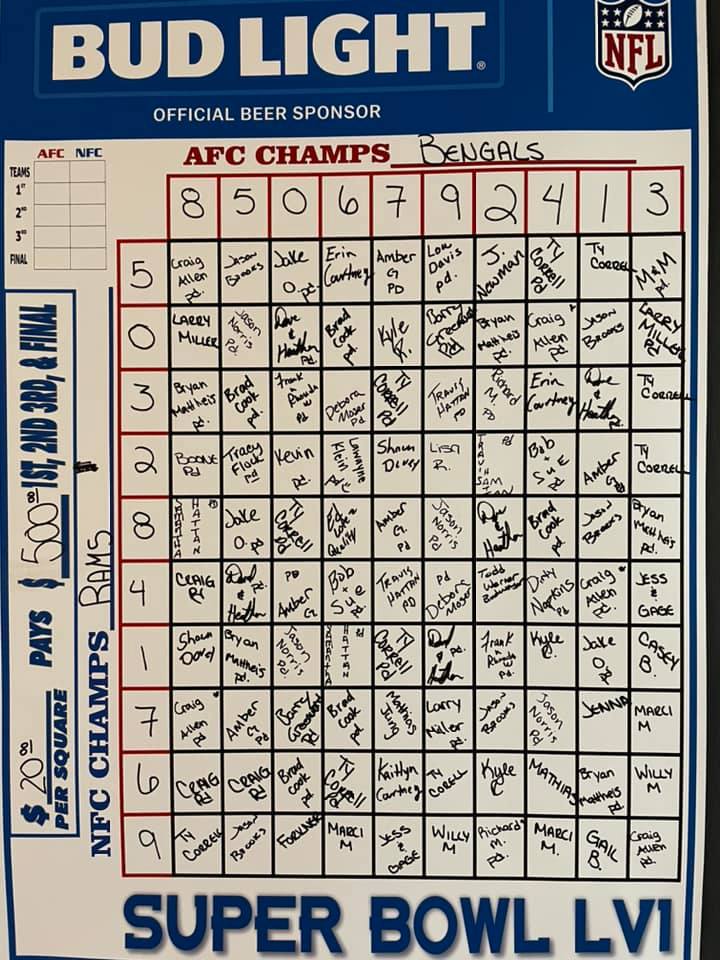 BUD LIGHT®
OFFICIAL BEER SPONSOR
NFL
AFC NFC
TEAMS
1ST
2ND
3RD
FINAL
AFC CHAMPS BENGALS
8 5 0 6 7 9 2 4 1 3
$ 20 00 PER SQUARE PAYS $ 500 00 1ST, 2ND 3RD, & FINAL
NFC CHAMPS RAMS
5 Craig Allen pd. Jason Brooks Jake O. pd. Erin Courtney Amber G PD Lou Davis pd. J. Newman Ty Correll Pd Ty Correll M&M pd.
0 LARRY MILLER Jason Norris Pd Dave & Heather Pd. Brad Cook pd. Kyle R. Barry Pd Bryan Mattheis pd. Craig Allen pd. JASON BROOKS LARRY MILLER Pd
3 Bryan Mattheis pd. Brad Cook pd. Frank & Rhonda W pd. Debora Moser Pd Ty Correll Pd TRAVIS HATTAN PD Richard M. PD Erin Courtney Dave & Heather Pd. Ty Correll
2 BOONE Pd Tracy Flock Pd Kevin pd. Klein Shawn Lisa R. Pd Bob + Sue Amber G Pd Ty Correll
8 SAMANTHA HATTAN PD Jake O. pd Ty Correll Pd Ed Quality Amber G. Pd Jason Norris Pd Dave & Heather Brad Cook pd. Jason Brooks Bryan Mattheis Pd.
4 CRAIG R Pd Dave & Heather pd. PD Amber G Bob + Sue pd. TRAVIS HATTAN PD Pd Debora Moser Todd Warner Dirty Napkins Pd Craig Allen pd. JESS & GAGE
1 Shawn Bryan Mattheis pd. Jason Norris Pd. SAMANTHA HATTAN Pd Ty Correll Pd Dave & Heather pd. Frank & Rhonda W Pd. Kyle R. Jake O. pd CASEY B.
7 Craig Allen pd Amber G Pd Barry Pd Brad Cook pd. Mathias Jung Larry Miller pd. Jason Brooks Jason Norris Pd JENNA MARCI M
6 CRAIG R Pd CRAIG R Pd Brad Cook pd Ty Correll Pd Kaitlyn Courtney Ty Corell Kyle R MATHIAS Bryan Mattheis pd. WILLY M
9 Ty Correll Jason Brooks MARCI M JESS & GAGE WILLY M Richard M. pd. MARCI M. GAIL B. Craig Allen pd.
SUPER BOWL LVI